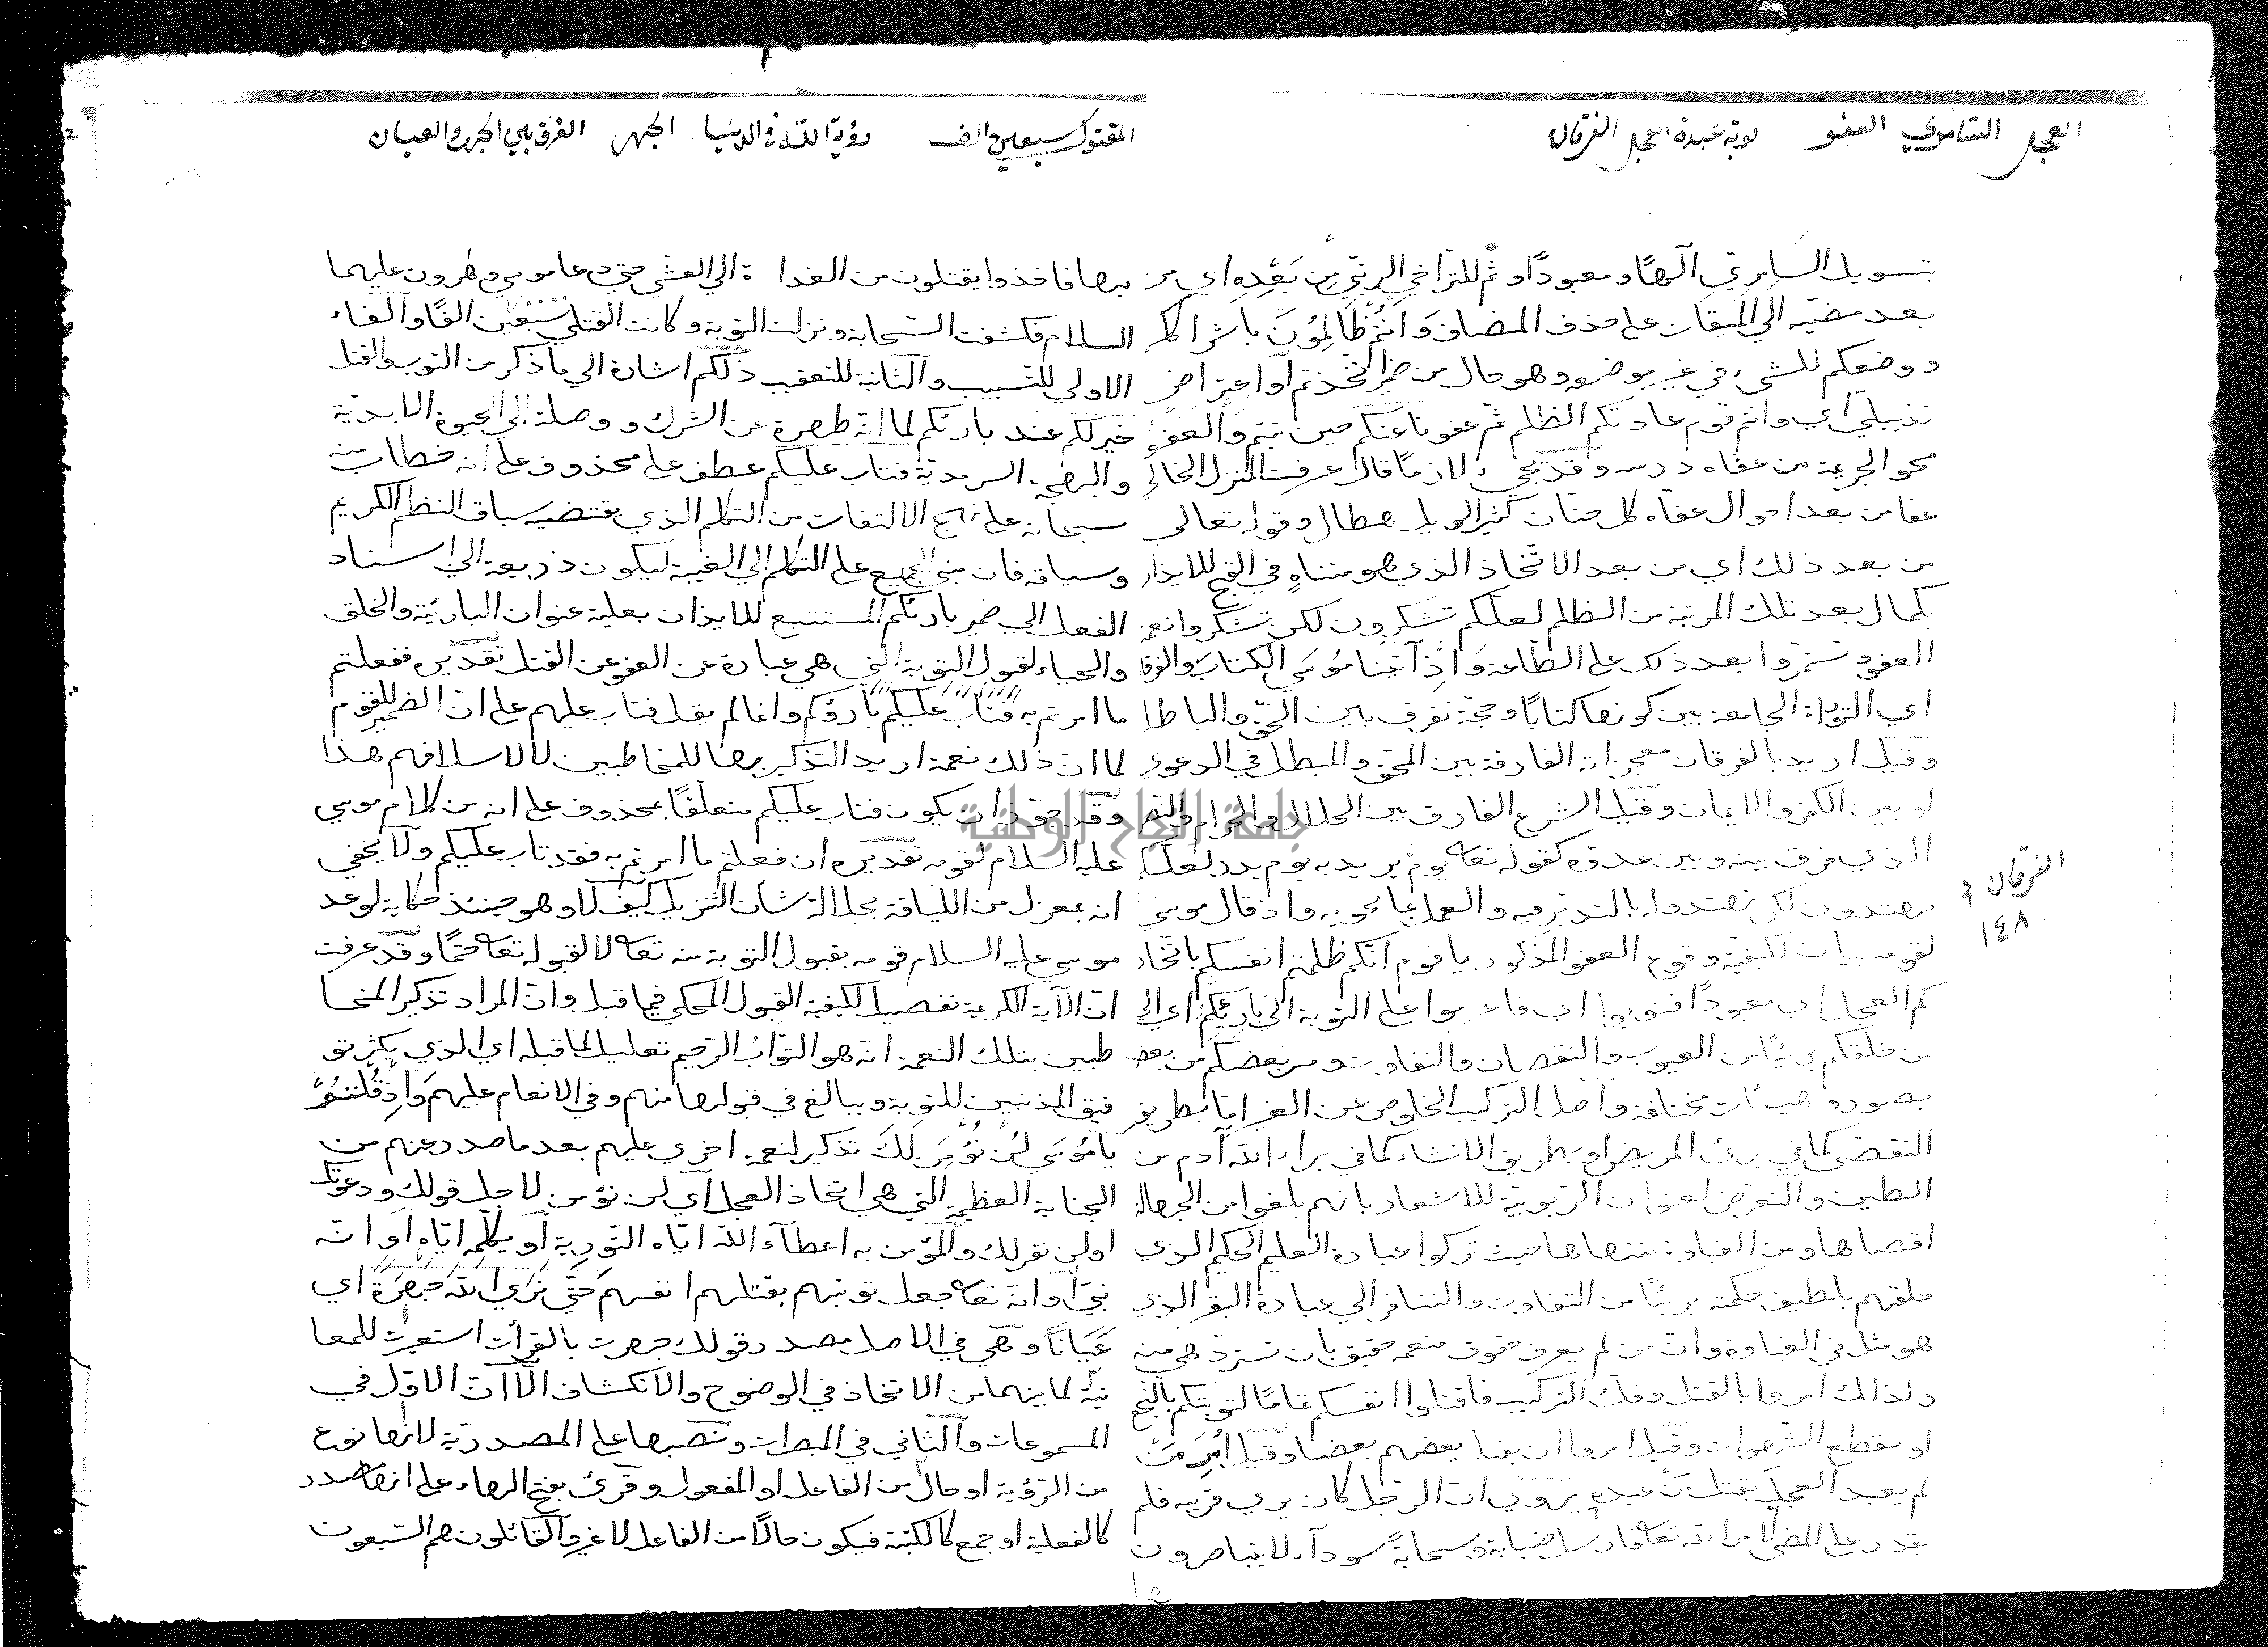 العجل السامري العفو توبة عبدة العجل الفرقان
المقتول سبعين الف رؤية الله في الدنيا الجهر الفرق بين الجهر والعيان
بتسويل السامري آلهًا ومعبودًا وثم للتراخي الرتبي مِن بَعْدِهِ اي من
بعد مضيه الي الميقات علي حذف المضاف وَاَنْتُمْ ظَالِمُونَ باشراككم
ووضعكم للشئ في غير موضعه وهو حال من ضمير اتخذتم او اعتراض
تذييلي اي وانتم قوم عادتكم الظلم ثم عفونا عنكم حين تبتم والعفو
محو الجريمة من عفاه درسه وقد يجيء لازمًا قال عرفت المنزل الخالي
عفا من بعد احوال عفاه كل حنان كثير الوبل هطال وقوله تعالي
من بعد ذلك اي من بعد الاتخاذ الذي هو متناهٍ في القبح للايذان
بكمال بعد تلك المرتبة من الظلم لعلكم تشكرون لكي تشكروا نعمة
العفو وتستمروا بعد ذلك علي الطاعة وَاِذْ آتَيْنَا مُوسَي الكتابَ والفرقان
اي التوراة الجامعة بين كونها كتابًا وحجة تفرق بين الحق والباطل
وقيل اريد بالفرقان معجزاته الفارقة بين المحق والمبطل في الدعوي
او بين الكفر والايمان وقيل الشرع الفارق بين الحلال والحرام والنصر
الذي فرق بينه وبين عدوه كقوله تعا يوم يريد به يوم بدر لعلكم
تهتدون لكي تهتدوا بالتدبر فيه والعمل بما يحويه واذ قال موسي
لقومه بيان لكيفية وقوع العفو المذكور يا قوم انكم ظلمتم انفسكم باتخاذ
كم العجل اي معبودًا فتوبوا اي فاعزموا علي التوبة الي بارئكم اي الي
من خلقكم بريئًا من العيوب والنقصان والتفاوت وميز بعضكم من بعض
بصور وهيئات مختلفة واصل التركيب الخلوص عن الغير اما بطريق
التقصي كما في برئ المريض او بطريق الانشاء كما في برأ الله آدم من
الطين والتعرض لعنوان الربوبية للاشعار بانهم بلغوا من الجهالة
اقصاها ومن الغباوة منتهاها حيث تركوا عبادة العليم الحكيم الذي
خلقهم بلطيف حكمته بريئًا من التفاوت والتنافر الي عبادة البقر الذي
هو مثل في الغباوة وان من لم يعرف حقوق منعمه حقيق بان تسترد هي منه
ولذلك امروا بالقتل وفك التركيب فاقتلوا انفسكم تمامًا لتوبتكم بالبخع
او بقطع الشهوات وقيل امروا ان يقتل بعضهم بعضا وقيل اُمِرَ مَنْ
لم يعبد العجل بقتل مَنْ عبده يروي ان الرجل كان يري قريبه فلم
يقدر علي المضي لامر الله تعا فارسل ضبابة وسحابة سوداء لا يتباصرون
بها
بها فاخذوا يقتلون من الغداة الي العشي حتي دعا موسي وهرون عليهما
السلام فكشفت السحابة ونزلت التوبة وكانت القتلي سبعين الفًا والفاء
الاولي للتسبيب والثانية للتعقيب ذلكم اشارة الي ما ذكر من التوب والقتل
خير لكم عند بارئكم لما انه طهرة عن الشرك ووصلة الي الحيوة الابدية
والبهجة السرمدية فتاب عليكم عطف علي محذوف علي انه خطاب منه
سبحانه علي نهج الالتفات من التكلم الذي يقتضيه سباق النظم الكريم
وسياقه فان مبني الجميع علي التكلم الي الغيبة ليكون ذريعة الي اسناد
الفعل الي ضمير بارئكم المستتبع للايذان بعلية عنوان البارئية والخلق
والاحياء لقبول التوبة التي هي عبارة عن العفو عن القتل تقديره ففعلتم
ما امرتم به فتاب عليكم بارؤكم وانما لم يقل فتاب عليهم علي ان الضمير للقوم
لما ان ذلك نعمة اريد التذكير بها للمخاطبين لا لاسلافهم هذا
وقد جوز ان يكون فتاب عليكم متعلقًا بمحذوف علي انه من كلام موسي
عليه السلام لقومه تقديره ان فعلتم ما امرتم به فقد تاب عليكم ولا يخفي
انه بمعزل من اللياقة بجلالة شان التنزيل كيف لا وهو حينئذ حكاية لوعد
موسي عليه السلام قومه بقبول التوبة منه تعا لا لقبوله تعا حتمًا وقد عرفت
ان الآية الكريمة تفصيل لكيفية القبول المحكي فيما قبل وان المراد تذكير المخا
طبين بتلك النعمة انه هو التواب الرحيم تعليل لما قبله اي الذي يكثر تو
فيق المذنبين للتوبة ويبالغ في قبولها منهم وفي الانعام عليهم وَاِذْ قُلْتُمْ
يَا مُوسَي لَنْ نُؤْمِنَ لَكَ تذكير لنعمة اخري عليهم بعد ما صدر عنهم من
الجناية العظيمة التي هي اتخاذ العجل اي لن نؤمن لاجل قولك ودعوتك
اولن نقر لك والمؤمن به اعطآء الله اياه التورية او تكليمه اياه او انه
نبي او انه تعا جعل توبتهم بقتلهم انفسهم حَتَّي نَرَي الله جَهْرَةً اي
عَيَانًا وهي في الاصل مصدر قولك جهرت بالقرأت استعيرت للمعا
ينة لما بينهما من الاتحاد في الوضوح والانكشاف الا ان الاول في
المسموعات والثاني في المبصرات ونصبها علي المصدرية لانها نوع
من الرؤية او حال من الفاعل او المفعول وقرئ بفتح الهاء علي انها مصدر
كالغلبة او جمع كالكتبة فيكون حالًا من الفاعل لا غير والقائلون هم السبعون
الفرقان في
١٤٨
جامعة النجاح الوطنية